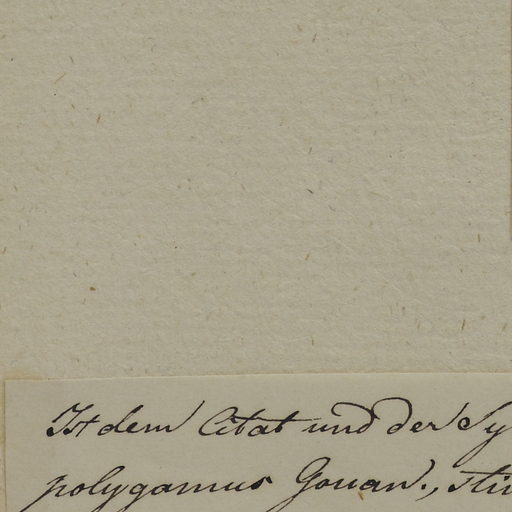 Ist dem Citat und der Sy
polygamus Gouan., sti